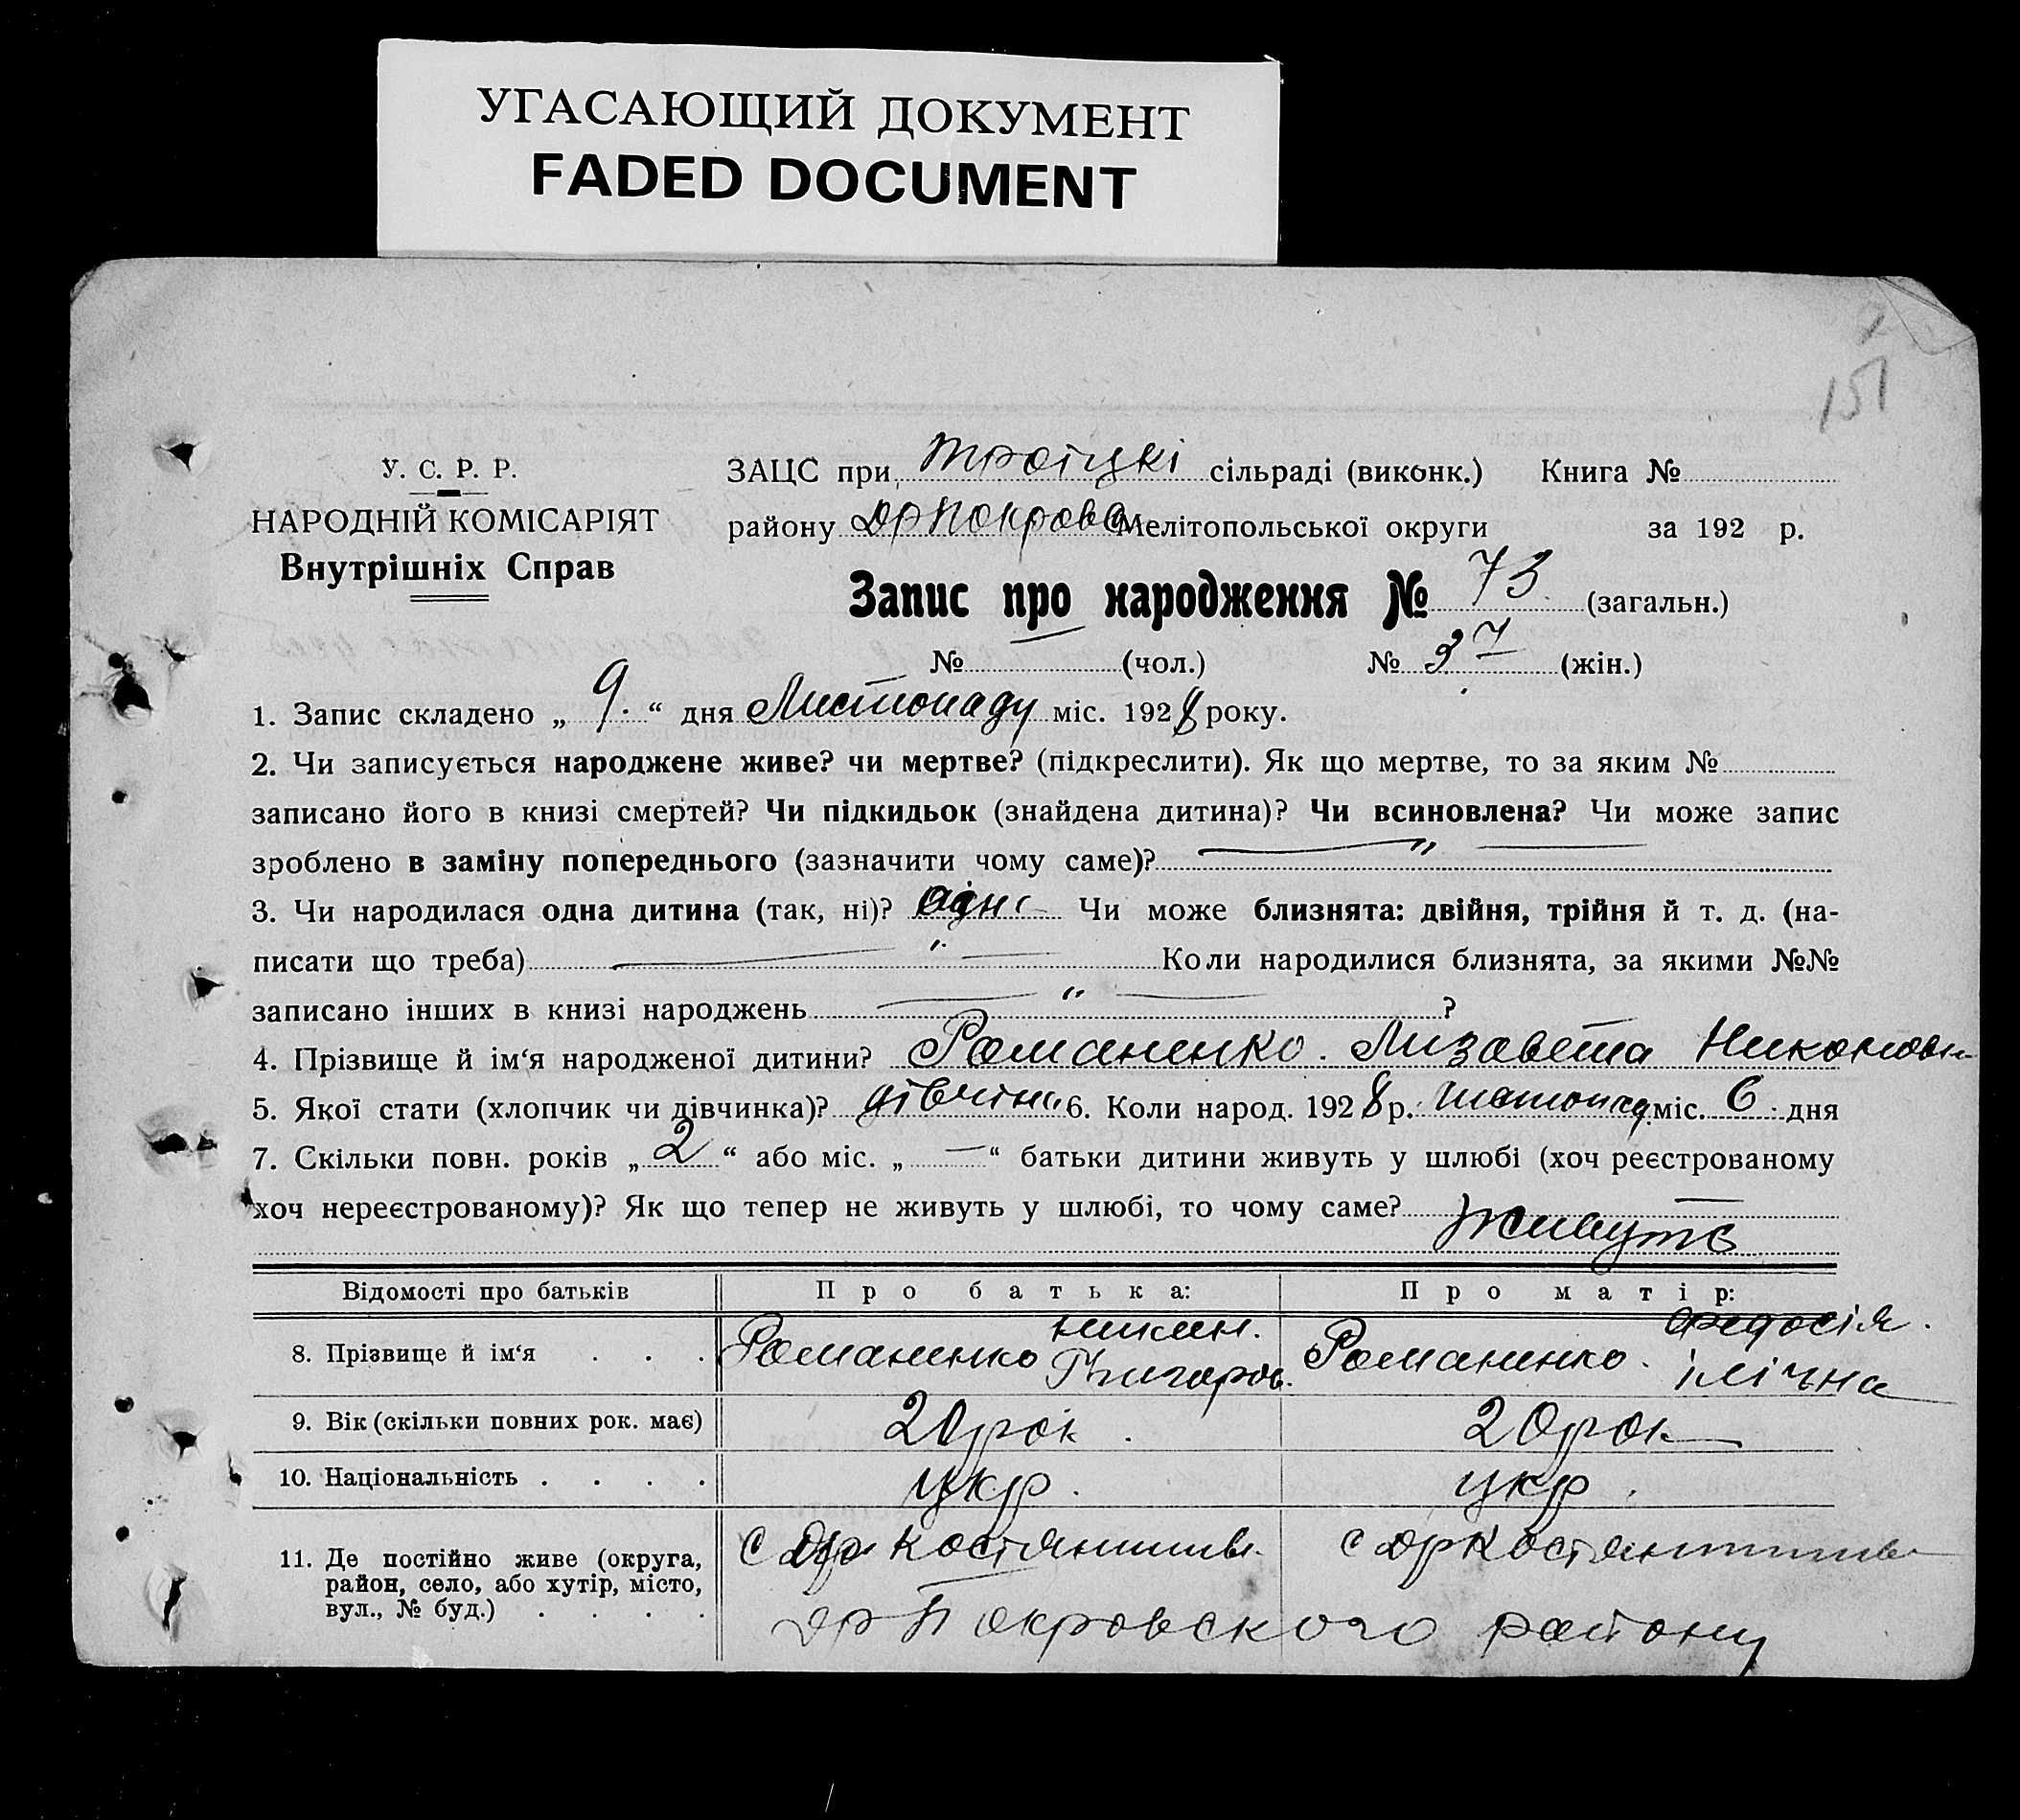 УГАСАЮЩИЙ ДОКУМЕНТ
FADED DOCUMENT
151
У. С. Р. Р.
НАРОДНІЙ КОМІСАРІЯТ
Внутрішніх Справ
ЗАЦС при Троїцкі сільраді (виконк.) Книга №
району Др Покровс Мелітопольської округи за 192 р.
Запис про народження № 73 (загальн.)
№ — (чол.) № 37 (жін.)
1. Запис складено „ 9. “ дня Листопаду міс. 1928 року.
2. Чи записується народжене живе? чи мертве? (підкреслити). Як що мертве, то за яким №
записано його в книзі смертей? Чи підкидьок (знайдена дитина)? Чи всиновлена? Чи може запис
зроблено в заміну попереднього (зазначити чому саме)? — „ —
3. Чи народилася одна дитина (так, ні)? Чи може близнята: двійня, трійня й т. д. (на-
писати що треба) — „ — Коли народилися близнята, за якими №№
записано інших в книзі народжень — „ — ?
4. Прізвище й ім‘я народженої дитини? Романенко. Лизавета
5. Якої стати (хлопчик чи дівчинка)? дівчіна 6. Коли народ. 1928 р. міс. 6. дня
7. Скільки повн. років „ 2 “ або міс. „ — “ батьки дитини живуть у шлюбі (хоч реєстрованому
хоч нереєстрованому)? Як що тепер не живуть у шлюбі, то чому саме? —
Живуть
Відомості про батьків Про батька: Про матір:
8. Прізвище й ім‘я . . . Романенко Романенко. Федосія.
ілічна
9. Вік (скільки повних рок. має) 20 рок. 20 рок
10. Національність . . . . укр. укр.
11. Де постійно живе (округа,
район, село, або хутір, місто,
вул., № буд.) . . . .
Др Покровского району